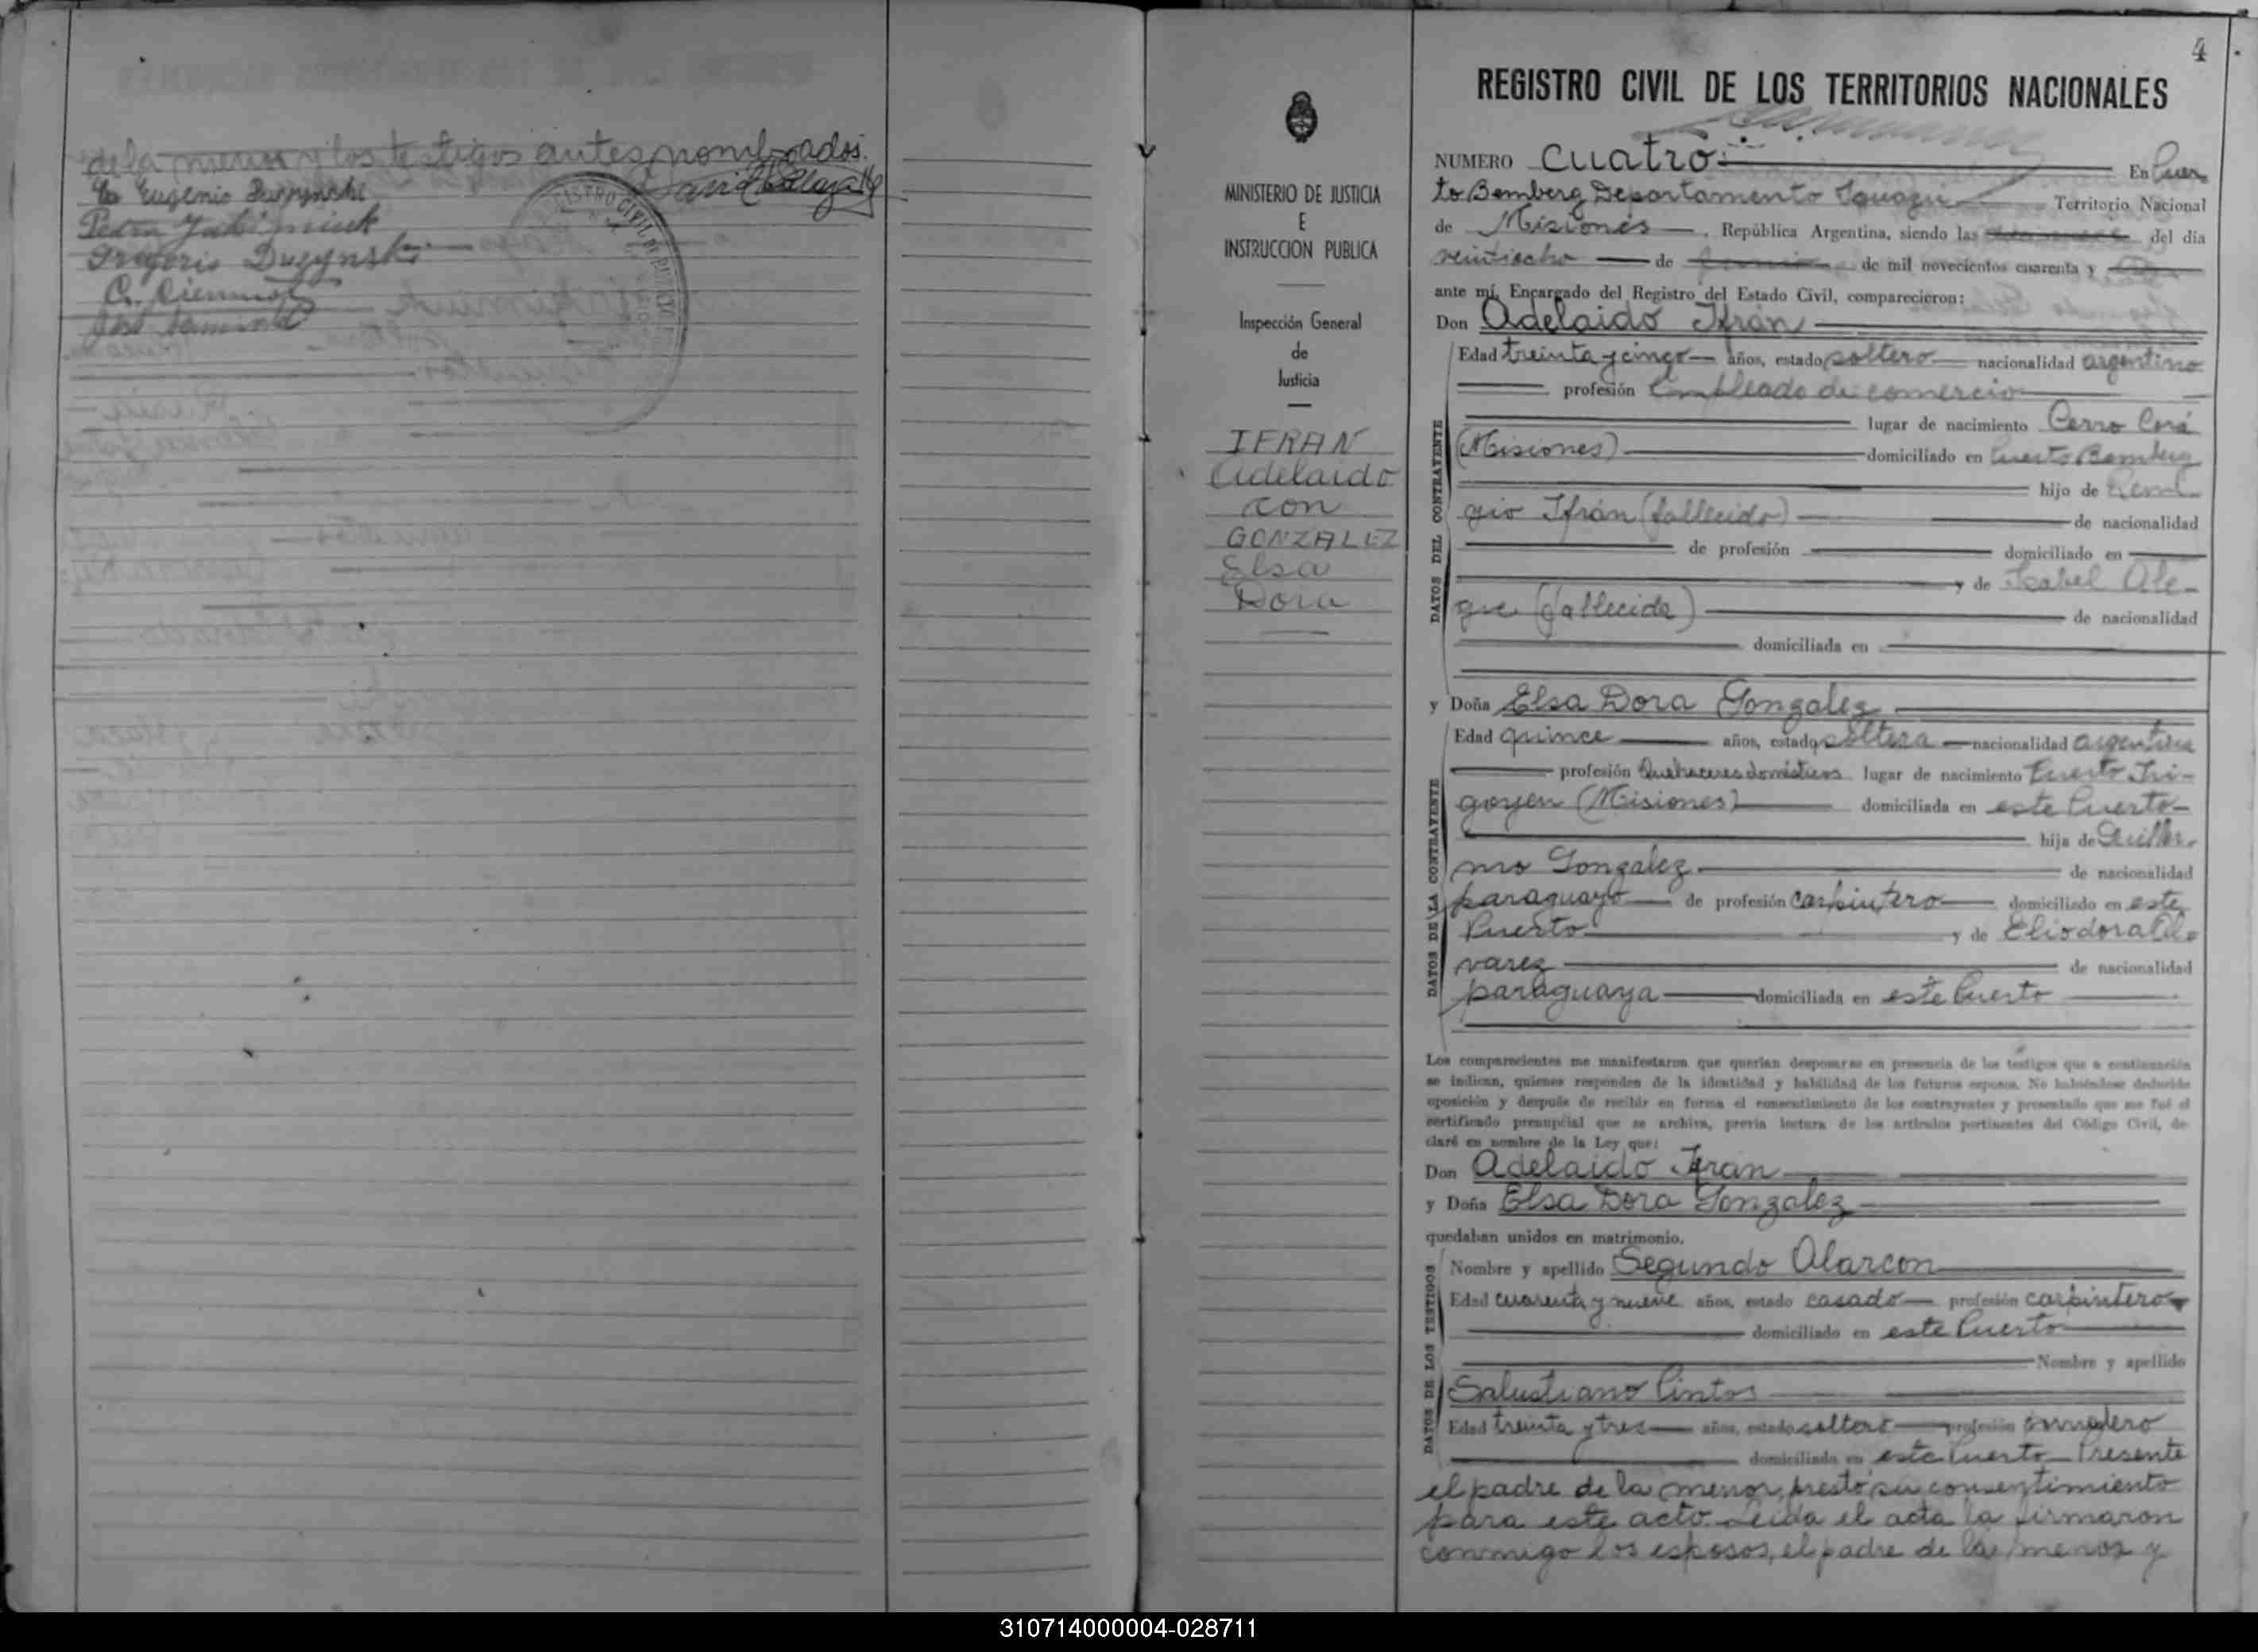 de la menor y los testigos antes nombrados.
Eugenio Duzynski
Pedro
Gregorio Duzynski
José
REGISTRO CIVIL
4
REGISTRO CIVIL DE LOS TERRITORIOS NACIONALES
MINISTERIO DE JUSTICIA
E
INSTRUCCION PUBLICA
Inspección General
de
Justicia
IFRAN
Adelaido
con
GONZALEZ
Elsa
Dora
NUMERO cuatro En Puer
to Bemberg Departamento Iguazú Territorio Nacional
de Misiones, República Argentina, siendo las del día
veintiocho de de mil novecientos cuarenta y
ante mí, Encargado del Registro del Estado Civil, comparecieron:
Don Adelaido Ifrán
DATOS DEL CONTRAYENTE
Edad treinta y cinco años, estado soltero nacionalidad argentino
profesión Empleado de comercio
lugar de nacimiento Cerro Corá
(Misiones) domiciliado en Puerto Bemberg
hijo de Remi
gio Ifrán (fallecido) de nacionalidad
de profesión domiciliado en
y de Isabel Ale-
gre (fallecida) de nacionalidad
domiciliada en
y Doña Elsa Dora Gonzalez
DATOS DE LA CONTRAYENTE
Edad quince años, estado soltera nacionalidad argentina
profesión Quehaceres domésticos lugar de nacimiento Puerto Iri-
goyen (Misiones) domiciliada en este Puerto
hija de Guiller-
mo Gonzalez de nacionalidad
paraguayo de profesión carpintero domiciliado en este
Puerto y de Eliodora Al-
varez de nacionalidad
paraguaya domiciliada en este Puerto
Los comparecientes me manifestaron que querían desposarse en presencia de los testigos que a continuación
se indican, quienes responden de la identidad y habilidad de los futuros esposos. No habiéndose deducido
oposición y después de recibir en forma el consentimiento de los contrayentes y presentado que me fué el
certificado prenupcial que se archiva, previa lectura de los artículos pertinentes del Código Civil, de-
claré en nombre de la Ley que:
Don Adelaido Ifran
y Doña Elsa Dora Gonzalez
quedaban unidos en matrimonio.
DATOS DE LOS TESTIGOS
Nombre y apellido Segundo Alarcon
Edad cuarenta y nueve años, estado casado profesión carpintero
domiciliado en este Puerto
Nombre y apellido
Salustiano Pintos
Edad treinta y tres años, estado soltero profesión
domiciliado en este Puerto Presente
el padre de la menor, prestó su consentimiento
para este acto. Leida el acta la firmaron
conmigo los esposos, el padre de la menor y
310714000004-028711